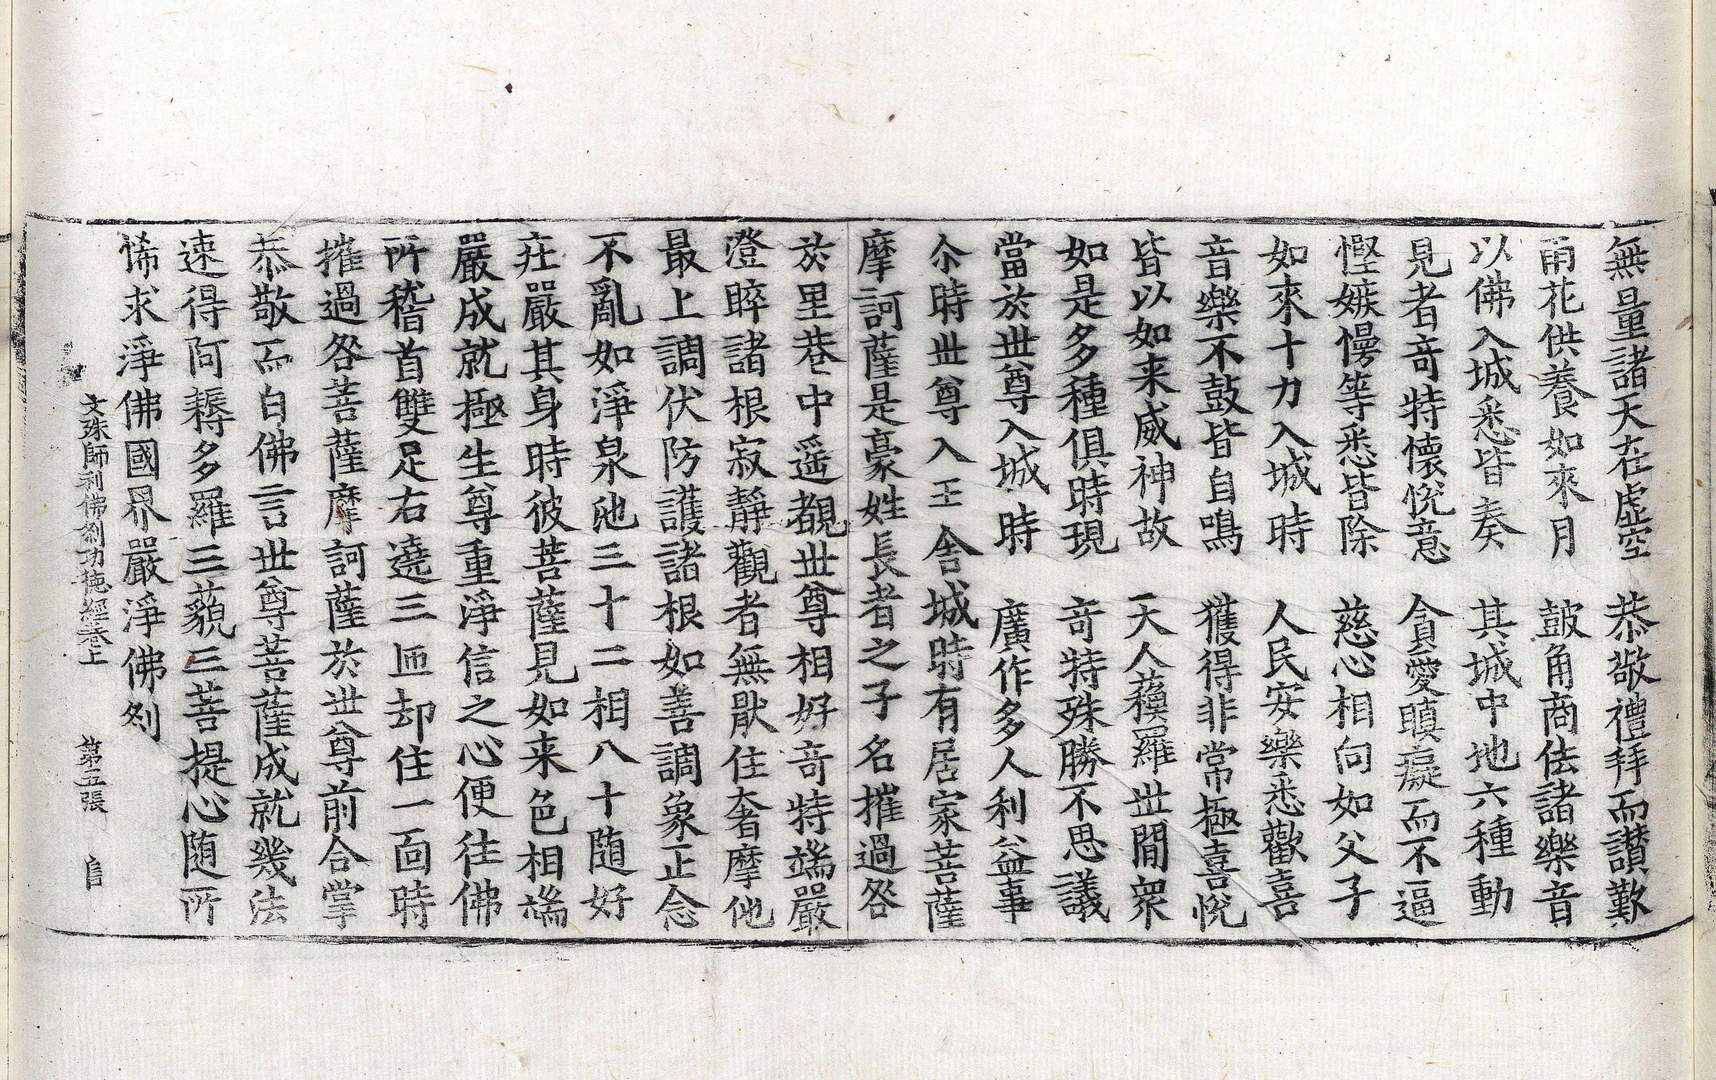 無量諸天在虛空　恭敬禮拜而讃歎
雨花供養如來月　鼓角商佉諸樂音
以佛入城悉皆奏　其城中地六種動
見者竒特懷悅意　貪愛瞋癡而不逼
慳嫉慢等悉皆除　慈心相向如父子
如來十力入城時　人民安樂悉歡喜
音樂不鼓皆自鳴　獲得非常極喜悅
皆以如来威神故　天人蘓羅世間衆
如是多種俱時現　竒特殊勝不思議
當於世尊入城時　廣作多人利益事
尒時世尊入王舎城時有居家菩薩
摩訶薩是豪姓長者之子名摧過咎
於里巷中遥覩世尊相好竒特端嚴
澄睟諸根寂靜觀者無猒住奢摩他
最上調伏防護諸根如善調象正念
不亂如淨泉池三十二相八十随好
莊嚴其身時彼菩薩見如来色相端
嚴成就極生尊重淨信之心便往佛
所稽首雙足右遶三匝却住一面時
摧過咎菩薩摩訶薩於世尊前合掌
恭敬而白佛言世尊菩薩成就幾法
速得阿耨多羅三藐三菩提心随所
悕求淨佛國界嚴淨佛刹
文殊師利佛刹功德經卷上　第五張